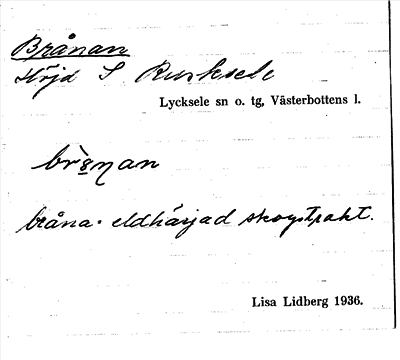 Brånan
Höjd S Rusksele
Lycksele sn o. tg, Västerbottens l.
bråna: eldhärjad skogstrakt.
Lisa Lidberg 1936.